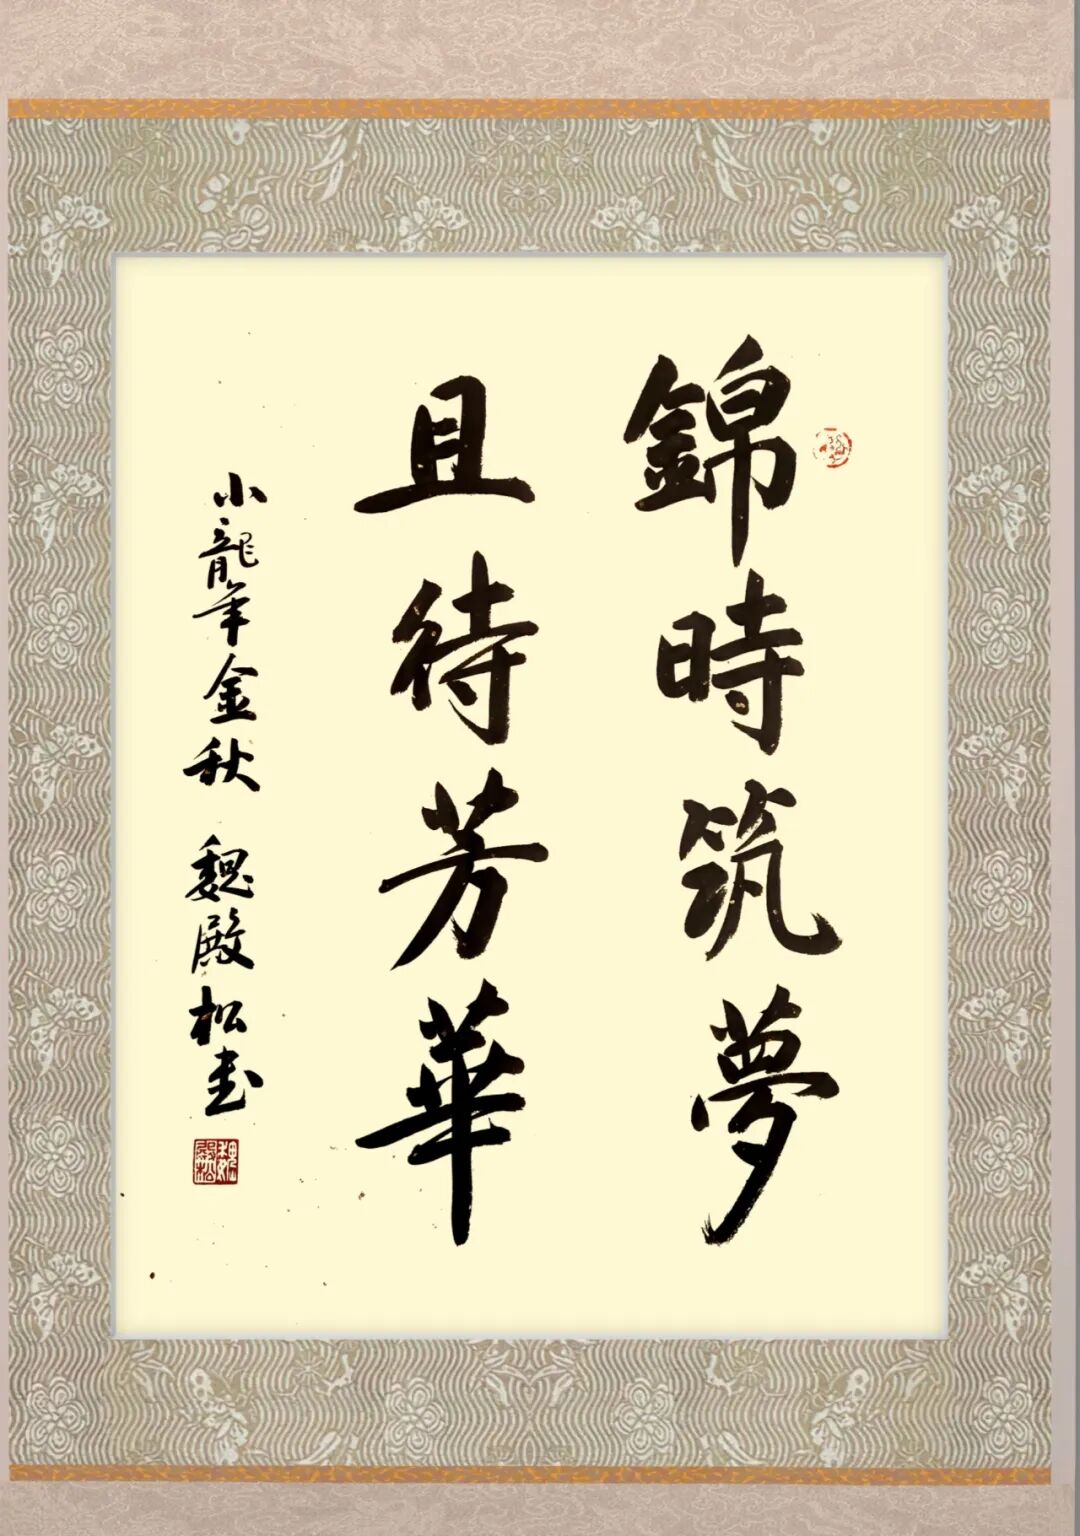 錦時筑夢
且待芳華
小龍年金秋 魏殿松書
魏殿松